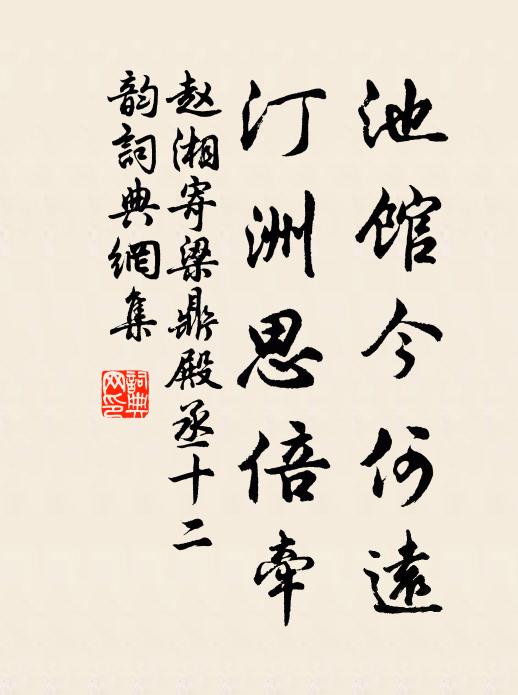 池館今何遠
汀洲思倍牽
赵湘寄梁鼎殿丞十二
韵詞典網集
詞典
网印